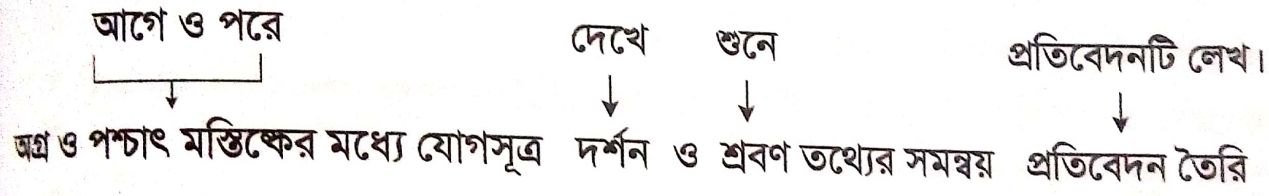 আগে ও পরে
দেখে শুনে প্রতিবেদনটি লেখ।
অগ্র ও পশ্চাৎ মস্তিষ্কের মধ্যে যোগসূত্র দর্শন ও শ্রবণ তথ্যের সমন্বয় প্রতিবেদন তৈরি